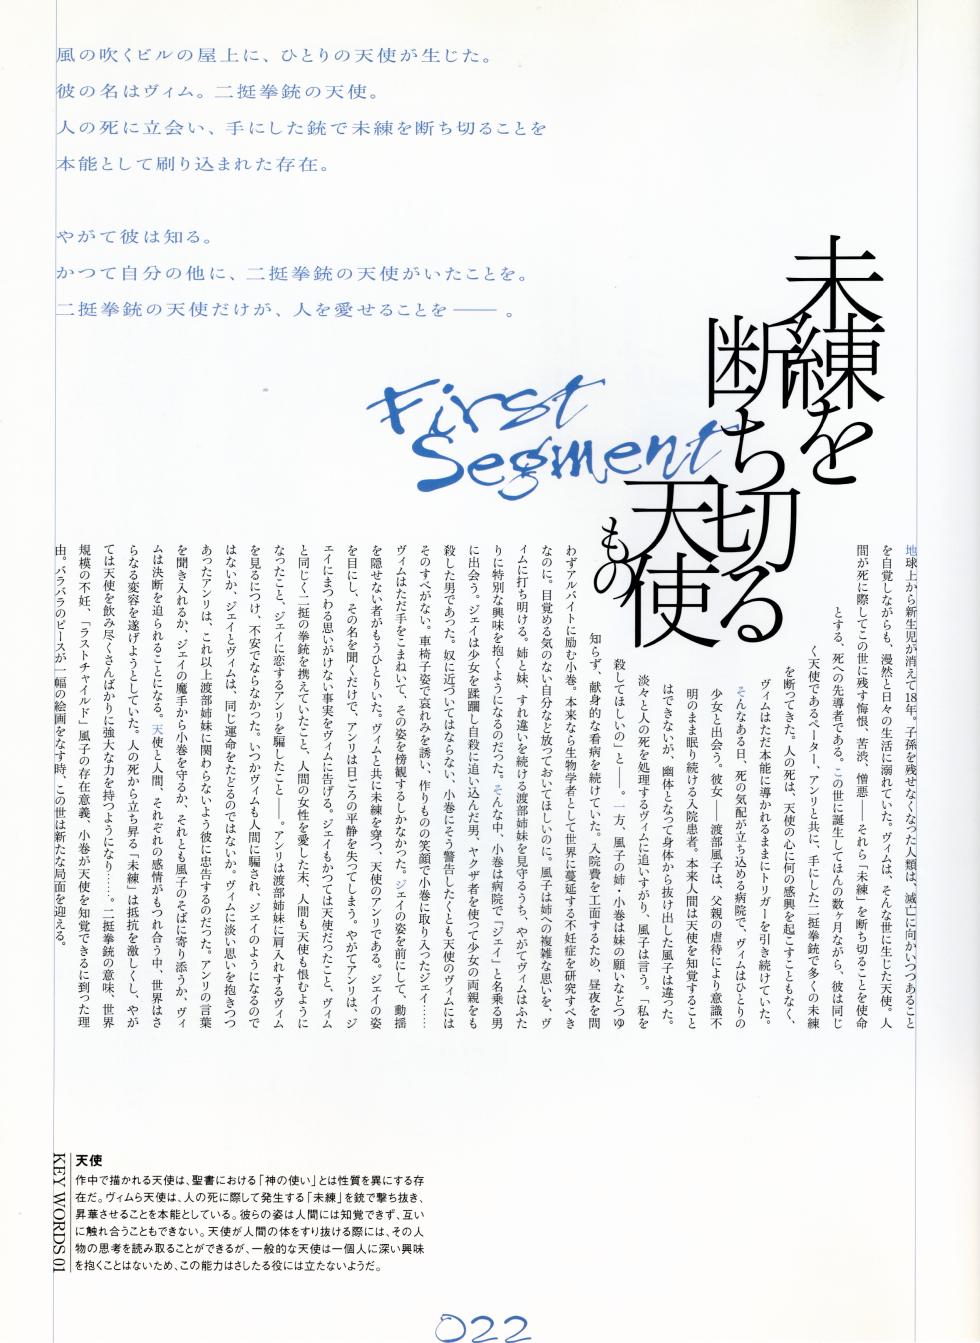 風の吹くビルの屋上に、ひとりの天使が生じた。
彼の名はヴィム。二挺拳銃の天使。
人の死に立会い、手にした銃で未練を断ち切ることを
本能として刷り込まれた存在。
やがて彼は知る。
かつて自分の他に、二挺拳銃の天使がいたことを。
二挺拳銃の天使だけが、人を愛せることを――。
未練を
断ち切る
天使
もの
First
Segment
地球上から新生児が消えて18年。子孫を残せなくなった人類は、滅亡に向かいつつあること
を自覚しながらも、漫然と日々の生活に溺れていた。ヴィムは、そんな世に生じた天使。人
間が死に際してこの世に残す悔恨、苦渋、憎悪――それら「未練」を断ち切ることを使命
とする、死への先導者である。この世に誕生してほんの数ヶ月ながら、彼は同じ
く天使であるペーター、アンリと共に、手にした二挺拳銃で多くの未練
を断ってきた。人の死は、天使の心に何の感興を起こすこともなく、
ヴィムはただ本能に導かれるままにトリガーを引き続けていた。
そんなある日、死の気配が立ち込める病院で、ヴィムはひとりの
少女と出会う。彼女――渡部風子は、父親の虐待により意識不
明のまま眠り続ける入院患者。本来人間は天使を知覚すること
はできないが、幽体となって身体から抜け出した風子は違った。
淡々と人の死を処理するヴィムに追いすがり、風子は言う。「私を
殺してほしいの」と――。一方、風子の姉・小巻は妹の願いなどつゆ
知らず、献身的な看病を続けていた。入院費を工面するため、昼夜を問
わずアルバイトに励む小巻。本来なら生物学者として世界に蔓延する不妊症を研究すべき
なのに。目覚める気のない自分など放っておいてほしいのに。風子は姉への複雑な思いを、ヴ
ィムに打ち明ける。姉と妹、すれ違いを続ける渡部姉妹を見守るうち、やがてヴィムはふた
りに特別な興味を抱くようになるのだった。そんな中、小巻は病院で「ジェイ」と名乗る男
に出会う。ジェイは少女を蹂躙し自殺に追い込んだ男、ヤクザ者を使って少女の両親をも
殺した男であった。奴に近づいてはならない、小巻にそう警告したくとも天使のヴィムには
そのすべがない。車椅子姿で哀れみを誘い、作りものの笑顔で小巻に取り入ったジェイ……
ヴィムはただ手をこまねいて、その姿を傍観するしかなかった。ジェイの姿を前にして、動揺
を隠せない者がもうひとりいた。ヴィムと共に未練を穿つ、天使のアンリである。ジェイの姿
を目にし、その名を聞くだけで、アンリは日ごろの平静を失ってしまう。やがてアンリは、ジ
ェイにまつわる思いがけない事実をヴィムに告げる。ジェイもかつては天使だったこと、ヴィム
と同じく二挺の拳銃を携えていたこと、人間の女性を愛した末、人間も天使も恨むように
なったこと、ジェイに恋するアンリを騙したこと――。アンリは渡部姉妹に肩入れするヴィム
を見るにつけ、不安でならなかった。いつかヴィムも人間に騙され、ジェイのようになるので
はないか、ジェイとヴィムは、同じ運命をたどるのではないか。ヴィムに淡い思いを抱きつつ
あったアンリは、これ以上渡部姉妹に関わらないよう彼に忠告するのだった。アンリの言葉
を聞き入れるか、ジェイの魔手から小巻を守るか、それとも風子のそばに寄り添うか、ヴィ
ムは決断を迫られることになる。天使と人間、それぞれの感情がもつれ合う中、世界はさ
らなる変容を遂げようとしていた。人の死から立ち昇る「未練」は抵抗を激しくし、やが
ては天使を飲み尽くさんばかりに強大な力を持つようになり……。二挺拳銃の意味、世界
規模の不妊、「ラストチャイルド」風子の存在意義、小巻が天使を知覚できるに到った理
由。バラバラのピースが一幅の絵画をなす時、この世は新たな局面を迎える。
KEY WORDS 01
天使
作中で描かれる天使は、聖書における「神の使い」とは性質を異にする存
在だ。ヴィムら天使は、人の死に際して発生する「未練」を銃で撃ち抜き、
昇華させることを本能としている。彼らの姿は人間には知覚できず、互い
に触れ合うこともできない。天使が人間の体をすり抜ける際には、その人
物の思考を読み取ることができるが、一般的な天使は一個人に深い興味
を抱くことはないため、この能力はさしたる役には立たないようだ。
022